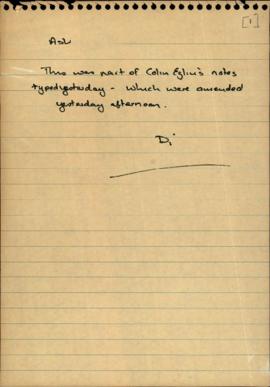 [1]
This was part of Colin Eglin's notes
typed yesterday - which were amended
yesterday afternoon.
Di